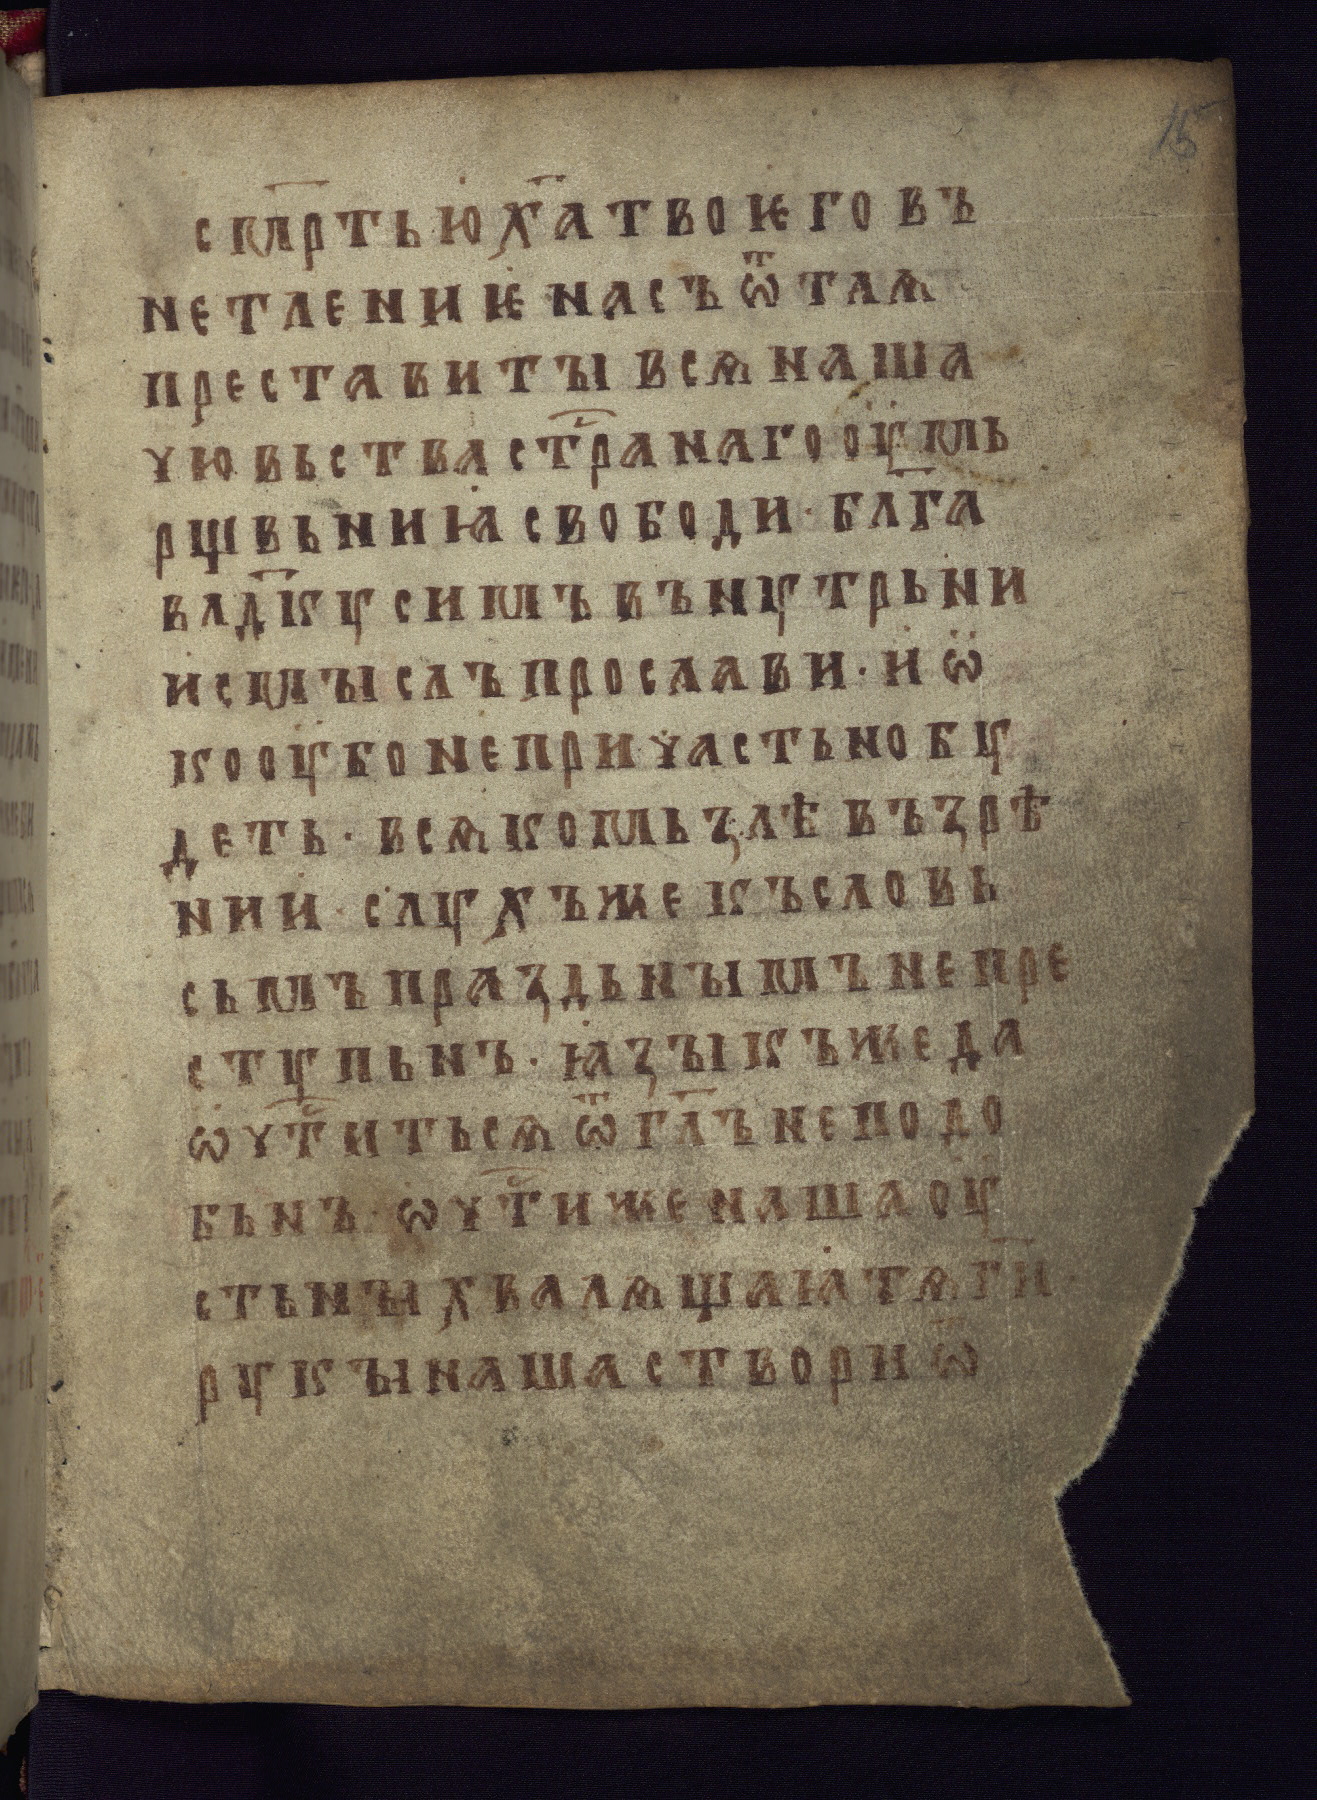 15
смр҃тью х҃а твоѥго въ
нетлениѥ насъ ѿ тлѧ
преставиты всѧ наша
чювьства стрⷭ҇анаго оумь
рщвьниꙗ свободи · бл҃га
влад҃коу симъ въноутрьни
и смыслъ прослави · и ѡ
ко оубо непричастьно боу
деть · всѧкомь злѣ въ зрѣ
нии · слоухъ же къ слове
сьмъ праздьнымъ непре
стоупьнъ · ꙗзыкъ же да
ѡчⷭ҇титьсѧ ѿ гл҃ъ неподо
бьнъ · ѡчⷭ҇ти же наша оу
стьны хвалѧщаꙗ тѧ г҃и ·
роукы наша створи ѿ